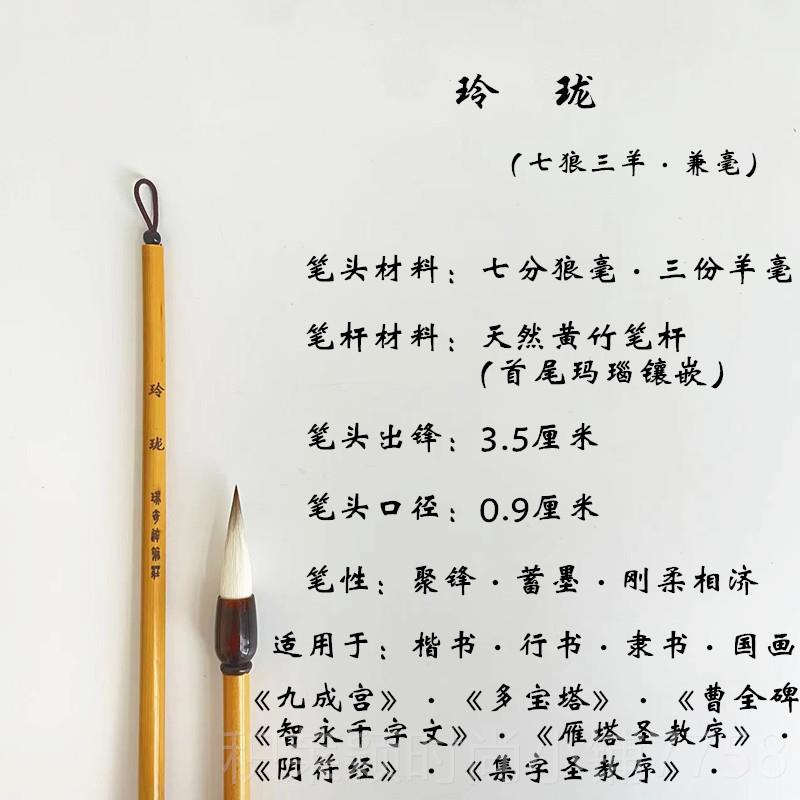 玲 珑
(七狼三羊·兼毫)
笔头材料：七分狼毫·三份羊毫
笔杆材料：天然黄竹笔杆
(首尾玛瑙镶嵌)
笔头出锋：3.5厘米
笔头口径：0.9厘米
笔性：聚锋·蓄墨·刚柔相济
适用于：楷书·行书·隶书·国画
《九成宫》·《多宝塔》·《曹全碑
《智永千字文》·《雁塔圣教序》·
《阴符经》·《集字圣教序》·
玲珑